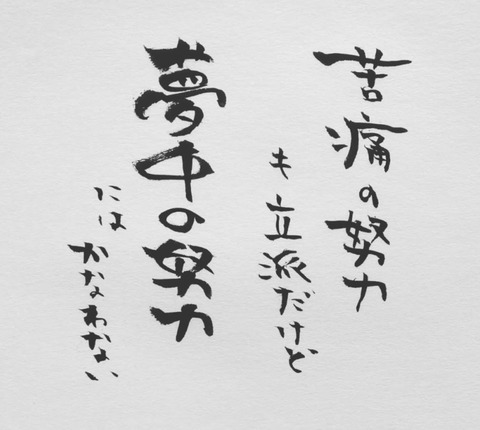 苦痛の努力
も立派だけど
夢中の努力
には
かなわない